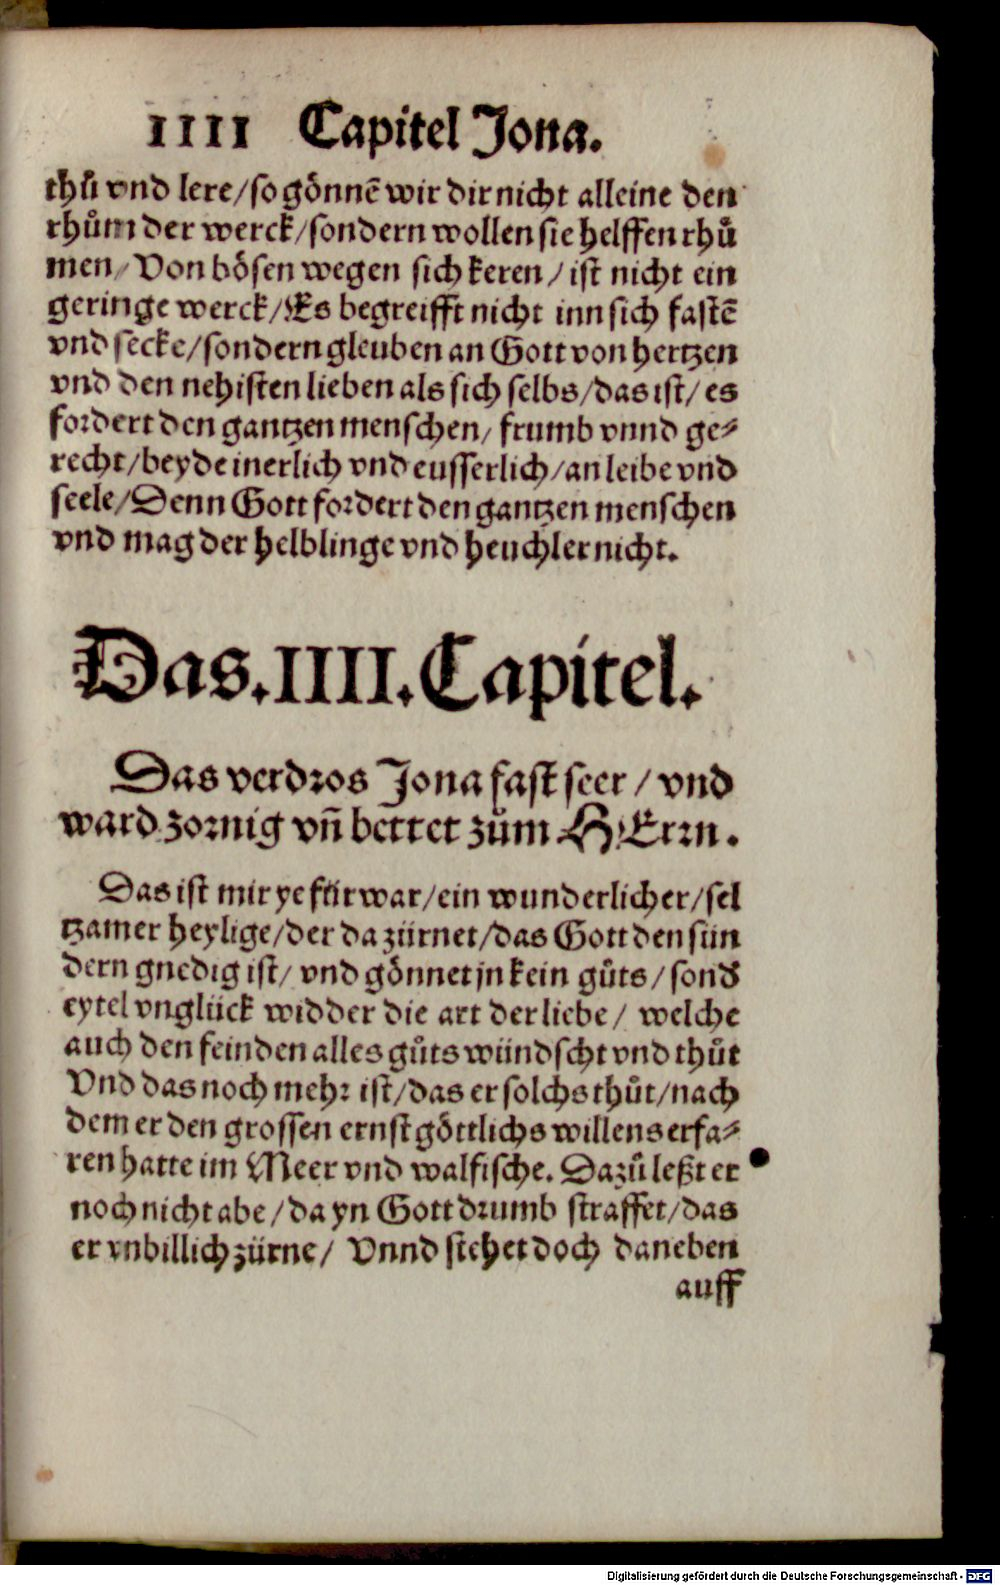 IIII Capitel Jona.
thů vnd lere/so gönnē wir dir nicht alleine den
rhům der werck/sondern wollen sie helffen rhů
men/Von bösen wegen sich keren/ist nicht ein
geringe werck/Es begreifft nicht inn sich fastē
vnd secke/sondern gleuben an Gott von hertzen
vnd den nehisten lieben als sich selbs/das ist/es
fordert den gantzen menschen/frumb vnnd ge⸗
recht/beyde inerlich vnd eusserlich/an leibe vnd
seele/Denn Gott fordert den gantzen menschen
vnd mag der helblinge vnd heuchler nicht.
Das.IIII.Capitel.
Das verdros Jona fast seer/vnd
ward zornig vñ bettet zům HErrn.
Das ist mir ye fürwar/ein wunderlicher/sel
tzamer heylige/der da zürnet/das Gott den sün
dern gnedig ist/vnd gönnet jn kein gůts/sond̕
eytel vnglück widder die art der liebe/welche
auch den feinden alles gůts wündscht vnd thůt
Vnd das noch mehr ist/das er solchs thůt/nach
dem er den grossen ernst göttlichs willens erfa⸗
ren hatte im Meer vnd walfische. Dazů leßt er
noch nicht abe/da yn Gott drumb straffet/das
er vnbillich zürne/Vnnd stehet doch daneben
auff
Digitalisierung gefördert durch die Deutsche Forschungsgemeinschaft - DFG